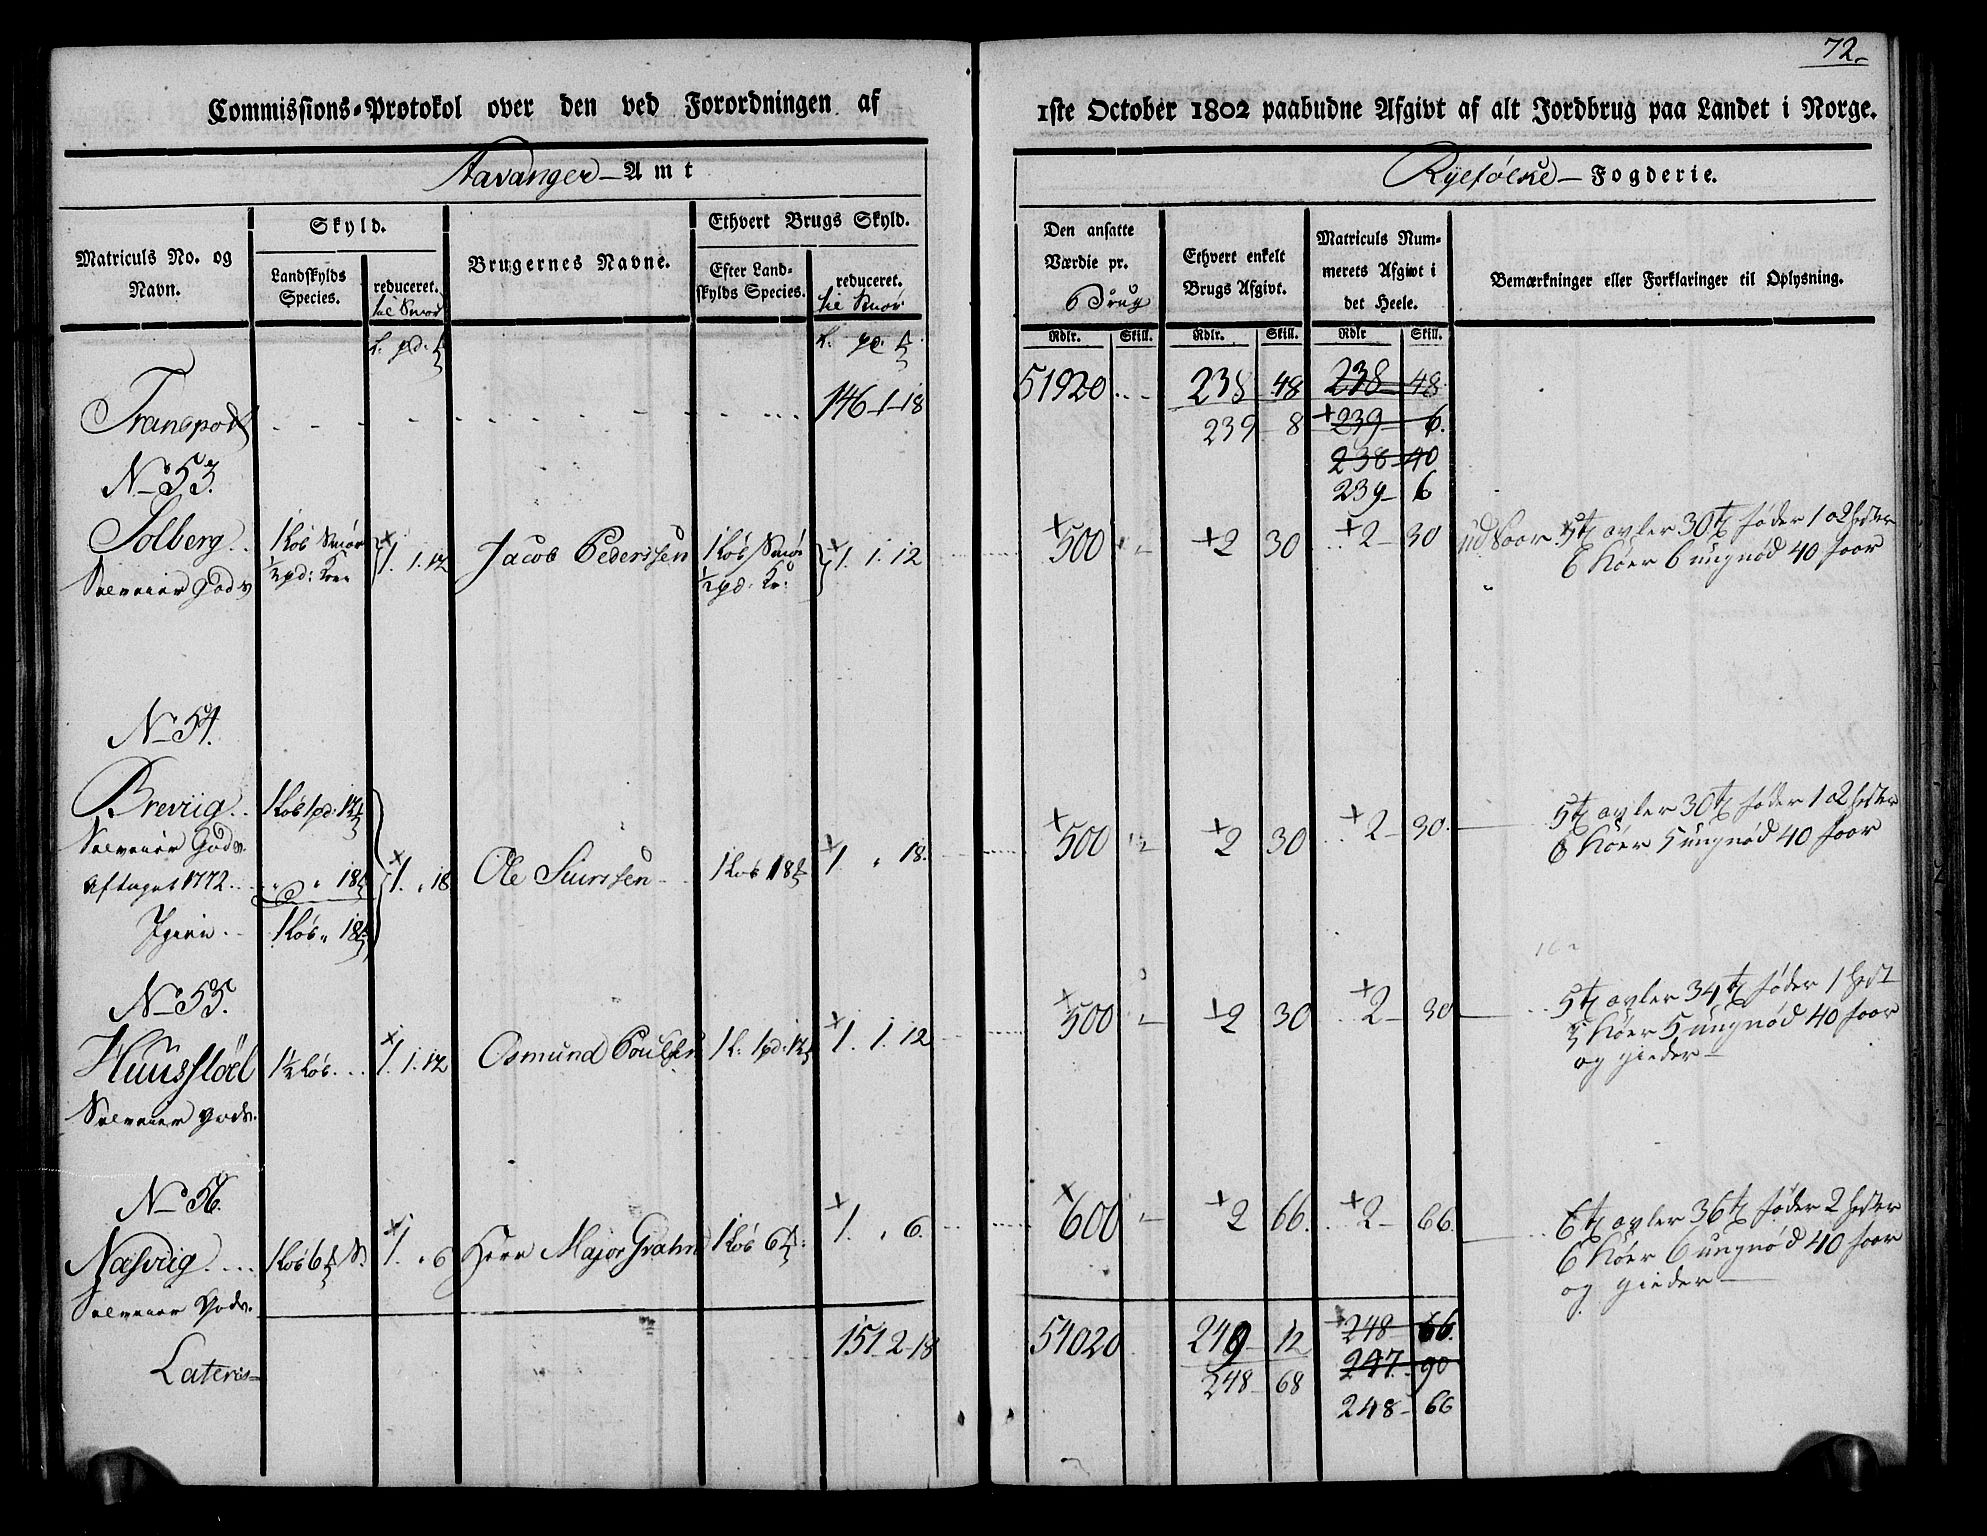 72.
Commissions-Protokol over den ved Forordningen af 1ste October 1802 paabudne Afgivt af alt Jordbrug paa Landet i Norge.
Stavanger Amt
Ryefølke Fogderie.
Matriculs No. og Navn.
Skyld.
Landskylds Species.
reduceret. til Smør
Brugernes Navne.
Ethvert Brugs Skyld.
Efter Landskylds Species.
reduceret. til Smør
Den ansatte Værdie pr. Brug
Ethvert enkelt Brugs Afgivt.
Matriculs Nummerets Afgivt i det Heele.
Bemærkninger eller Forklaringer til Oplysning.
Rdlr. Skill. Rdlr. Skill. Rdlr Skill.
Transport 146-1-18 51920 238 48 238-48
239 8 +239- 6.
238-40
239- 6
No 53.
Solberg 1 Løb Smør 1. 1. 12 Jacob Pederssen 1 Løb Smør 1. 1. 12 500 2 30 2- 30 5 avler 30 føder 1 a 2 Hester
Selveier Gods 1/2 pd: Korn 1/2 pd: 6 Køer 6 ungnød 40 faar
No 54.
Breviig 1 Løb 1 pd: 12 500 2 30 2- 30. 5 avler 30 føder 1 a 2 hester
Selveier Gods 6 Køer 5 ungnød 40 faar
Aftaget 1772 18 1. 18 Ole Siurssen 1 Løb 18 1 18.
Igien 1 Løb 18
No 55.
Huusstöel 1 1/2 Løb 1. 1. 12 Osmund Poulsen 1 L: 1 pd: 12 1. 1. 12 500 2 30 2- 30 5 avler 34 føder 1 hest
Selveier Gods. 5 Køer 5 ungnød 40 faar
og gieder
No 56.
Næsviig 1 Løb 6 S. 1. 6 Herr Major Grahn 1 Løb 6 1. 6. 600 2 66. 2- 66. 6 avler 36 føder 2 hester
Selveier Gods. 6 Køer 6 ungnød 40 faar
og gieder
Lateris 151-2-18 54020 249 12 248 66.
248- 68 247. 90
248- 66